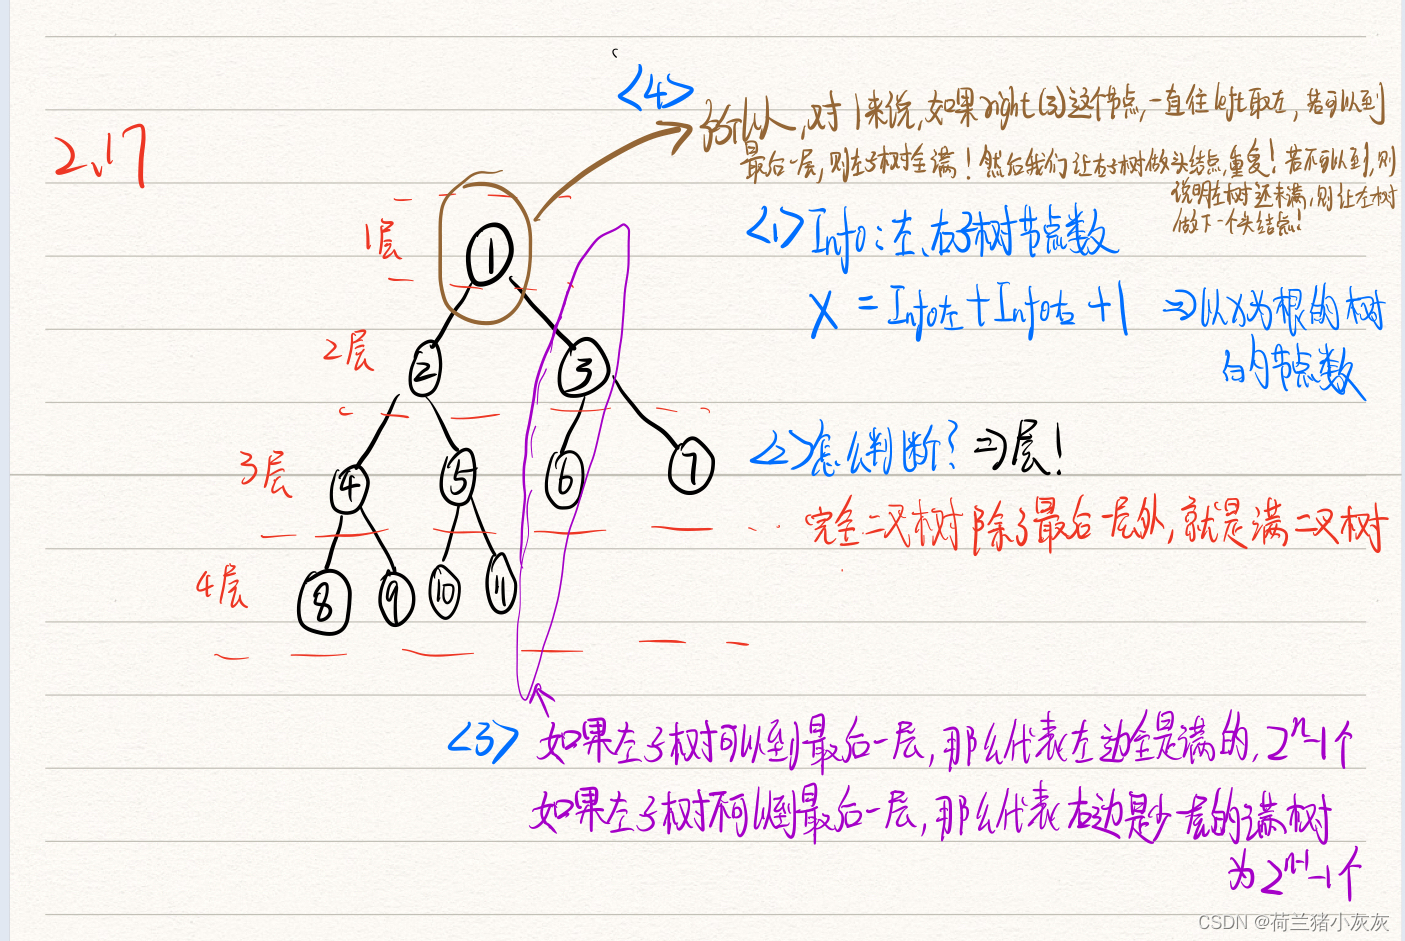 2.17
<4>
所以，对1来说，如果right(3)这个节点，一直往left取左，若可以到
最后一层，则左子树全满！然后我们让右子树做头结点，重复！若不可以到，则
说明左树还未满，则让左树
做下一个头结点！
<1> Info：左、右子树节点数
X = Info左 + Info右 + 1 ⇒ 以X为根的树
的节点数
<2> 怎么判断？⇒ 层！
完全二叉树除了最后一层外，就是满二叉树
1层
1
2层
2
3
3层
4
5
6
7
4层
8
9
10
11
<3> 如果左子树可以到最后一层，那么代表左边全是满的，2^n-1个
如果左子树不可以到最后一层，那么代表右边是少一层的满树
为2^{n-1}-1个
CSDN @荷兰猪小灰灰